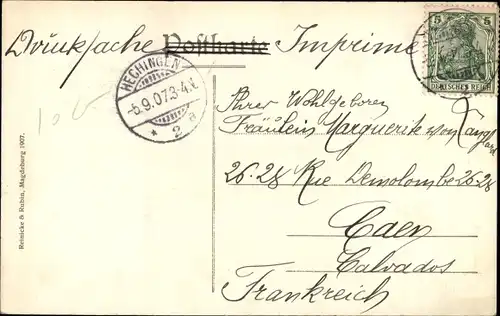 Drucksache Postkarte Imprimé
5 5
DEUTSCHES REICH
HECHINGEN
-5.9.07.3-4.N.
* 2 a
Ihrer Wohlgeboren
Fräulein Marguerite von
26-28 Rue Demolombe 26-28
Caen
Calvados
Frankreich
Reinicke & Rubin, Magdeburg 1907.